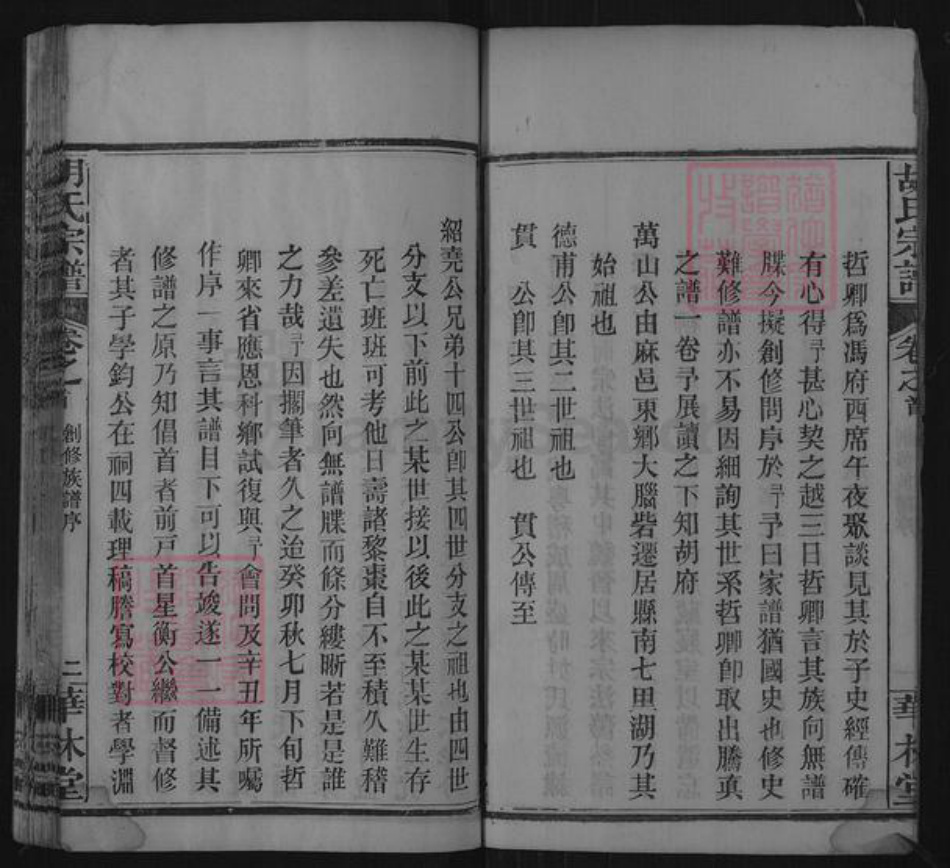 胡氏宗譜
卷之首
華林堂
哲卿爲馮府西席午夜聚談見其於子史經傳確
有心得予甚心契之越三日哲卿言其族向無譜
牒今擬創修問序於予予曰家譜猶國史也修史
難修譜亦不易因細詢其世系哲卿卽取出謄真
之譜一卷予展讀之下知胡府
萬山公由麻邑東鄉大腦砦遷居縣南七里湖乃其
始祖也
德甫公卽其二世祖也
貫 公卽其三世祖也 貫公傳至
紹堯公兄弟十四公卽其四世分支之祖也由四世
分支以下前此之某世接以後此之某某世生存
死亡班班可考他日壽諸黎棗自不至積久難稽
參差遺失也然向無譜牒而條分縷晰若是是誰
之力哉予因擱筆者久之迨癸卯秋七月下旬哲
卿來省應恩科鄉試復與予會問及辛丑年所囑
作序一事言其譜目下可以告竣遂一一備述其
修譜之原乃知倡首者前戸首星衡公繼而督修
者其子學鈞公在祠四載理稿謄寫校對者學淵
胡氏宗譜
卷之首
創修族譜序
二
華林堂